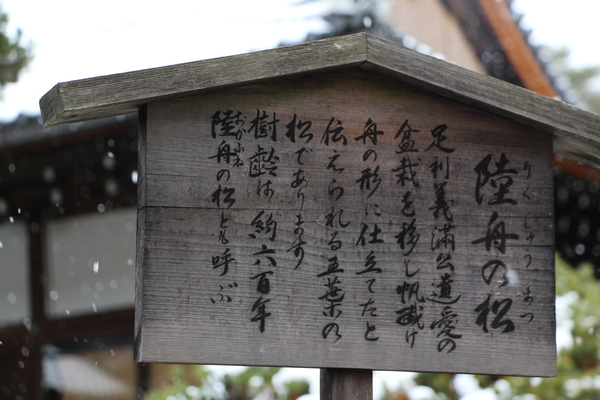 陸舟の松
りくしゅうのまつ
足利義満公遺愛の
盆栽を移し帆掛け
舟の形に仕立てたと
伝えられる五葉の
松であります
樹齢は約六百年
陸舟の松とも呼ぶ
おかふね